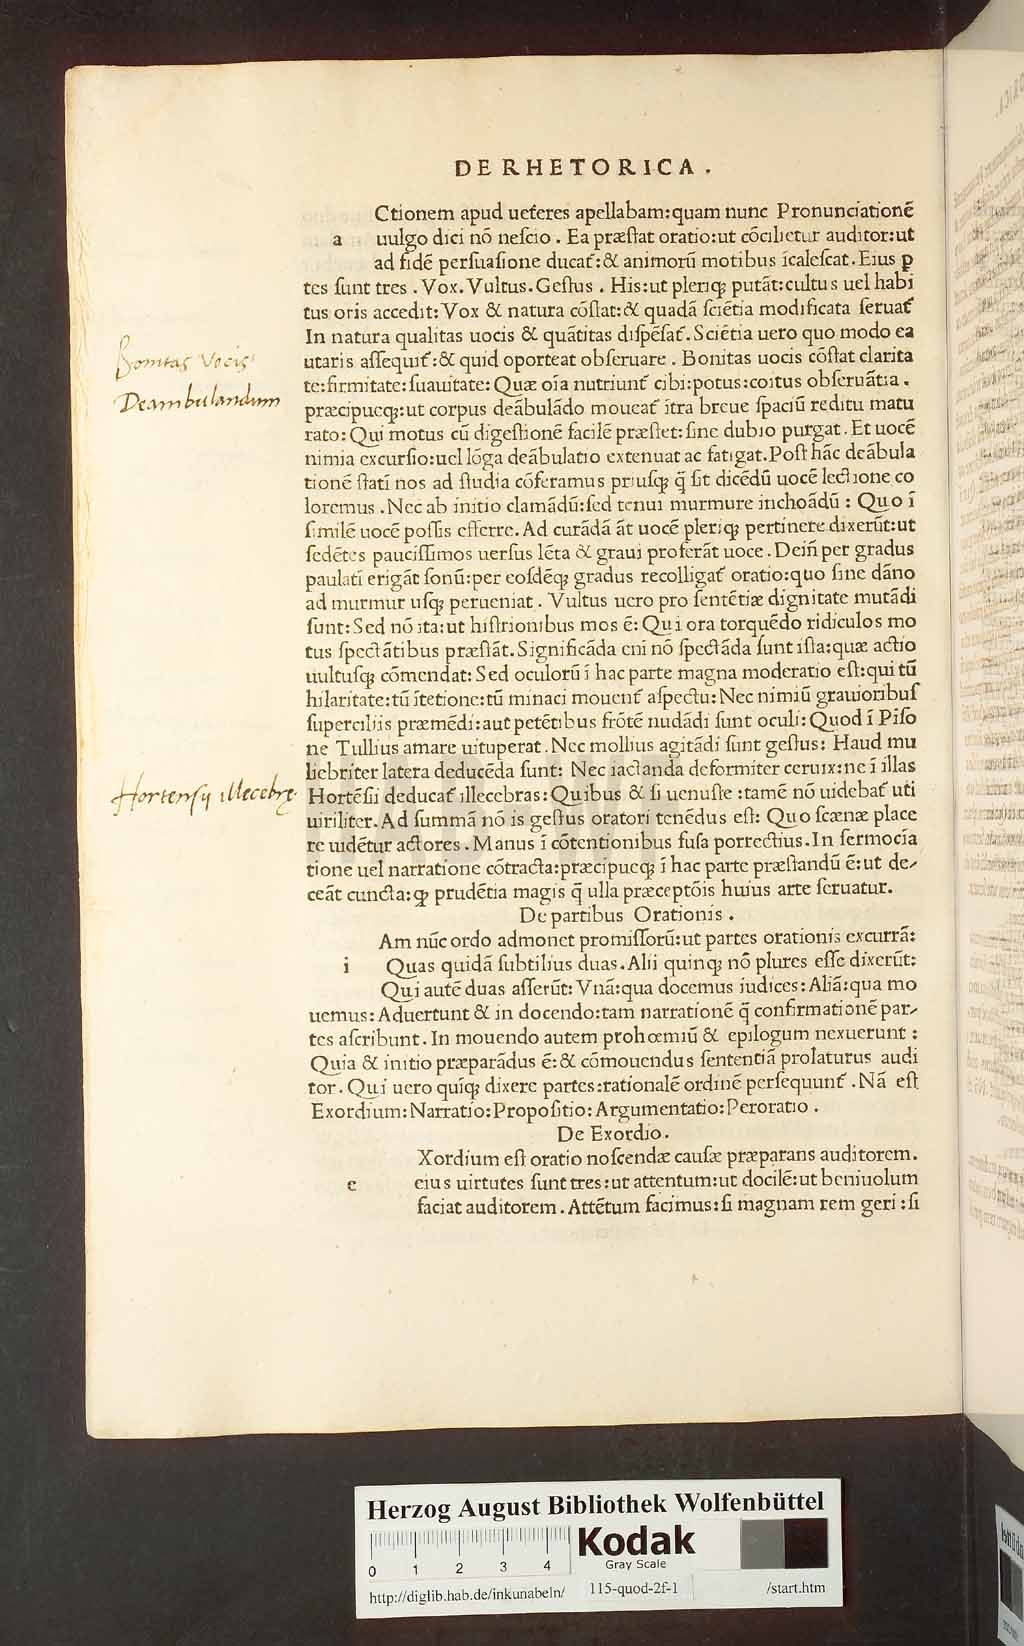 DE RHETORICA .
Ctionem apud ueteres apellabam:quam nunc Pronunciationē
a uulgo dici nō neſcio . Ea præſtat oratio:ut cōcilietur auditor:ut
ad fidē perſuaſione ducat᷑:& animorū motibus īcaleſcat . Eius ꝑ
tes ſunt tres . Vox . Vultus . Geſtus . His:ut pleriqꝫ putāt:cultus uel habi
tus oris accedit: Vox & natura cōſtat:& quadā ſciētia modificata ſeruat᷑
In natura qualitas uocis & quātitas diſpēſat᷑ . Sciētia uero quo modo ea
utaris aſſequit᷑:& quid oporteat obſeruare . Bonitas uocis cōſtat clarita
te:firmitate:ſuauitate: Quæ oīa nutriunt᷑ cibi:potus:coitus obſeruātia .
præcipueqꝫ:ut corpus deābulādo moueat᷑ ītra breue ſpaciū reditu matu
rato: Qui motus cū digeſtionē facilē præſtet: ſine dubio purgat . Et uocē
nimia excurſio:uel lōga deābulatio extenuat ac fatigat . Poſt hāc deābula
tionē ſtatī nos ad ſtudia cōferamus priuſqꝫ q̄ ſit dicēdū uocē lectione co
loremus . Nec ab initio clamādū:ſed tenui murmure inchoādū : Quo ī
ſimilē uocē poſſis efferre . Ad curādā āt uocē pleriqꝫ pertinere dixerūt:ut
ſedētes pauciſſimos uerſus lēta & graui proferāt uoce . Dein̄ per gradus
paulatī erigāt ſonū:per eoſdēqꝫ gradus recolligat᷑ oratio:quo ſine dāno
ad murmur uſqꝫ perueniat . Vultus uero pro ſentētiæ dignitate mutādi
ſunt: Sed nō ita: ut hiſtrionibus mos ē: Qui ora torquēdo ridiculos mo
tus ſpectātibus præſtāt . Significāda eni nō ſpectāda ſunt iſta:quæ actio
uultuſqꝫ cōmendat: Sed oculorū ī hac parte magna moderatio eſt:qui tū
hilaritate:tū ītetione:tū minaci mouent᷑ aſpectu: Nec nimiū grauioribuſ
ſuperciliis præmēdi:aut petētibus frōtē nudādi ſunt oculi: Quod ī Piſo
ne Tullius amare uituperat . Nec mollius agitādi ſunt geſtus: Haud mu
liebriter latera deducēda ſunt: Nec iactanda deformiter ceruix:ne ī illas
Hortēſii deducat᷑ illecebras: Quibus & ſi uenuſte :tamē nō uidebat᷑ uti
uiriliter. Ad ſummā nō is geſtus oratori tenēdus eſt: Quo ſcænæ place
re uidētur actores . Manus ī cōtentionibus fuſa porrectius . In ſermocīa
tione uel narratione cōtracta:præcipueqꝫ ī hac parte præſtandū ē:ut de-
ceāt cuncta: ꝙ prudētia magis q̄ ulla præceptōis huius arte ſeruatur.
De partibus Orationis .
Am nūc ordo admonet promiſſorū:ut partes orationis excurrā:
i Quas quidā ſubtilius duas . Alii quinqꝫ nō plures eſſe dixerūt:
Qui autē duas aſſerūt: Vnā:qua docemus iudices: Aliā:qua mo
uemus: Aduertunt & in docendo:tam narrationē q̄ confirmationē par-
tes aſcribunt . In mouendo autem prohœmiū & epilogum nexuerunt :
Quia & initio præparādus ē:& cōmouendus ſententiā prolaturus audi
tor . Qui uero quīqꝫ dixere partes:rationalē ordinē perſequunt᷑ . Nā eſt
Exordium: Narratio: Propoſitio: Argumentatio: Peroratio .
De Exordio .
Xordium eſt oratio noſcendæ cauſæ præparans auditorem .
e eius uirtutes ſunt tres:ut attentum:ut docilē:ut beniuolum
faciat auditorem . Attētum facimus:ſi magnam rem geri :ſi
Bonitas vocis
Deambulandum
Hortensij illecebrę.
HAB-WF
Herzog August Bibliothek Wolfenbüttel
0 1 2 3 4
Kodak
Gray Scale
http://diglib.hab.de/inkunabeln/ 115-quod-2f-1 /start.htm